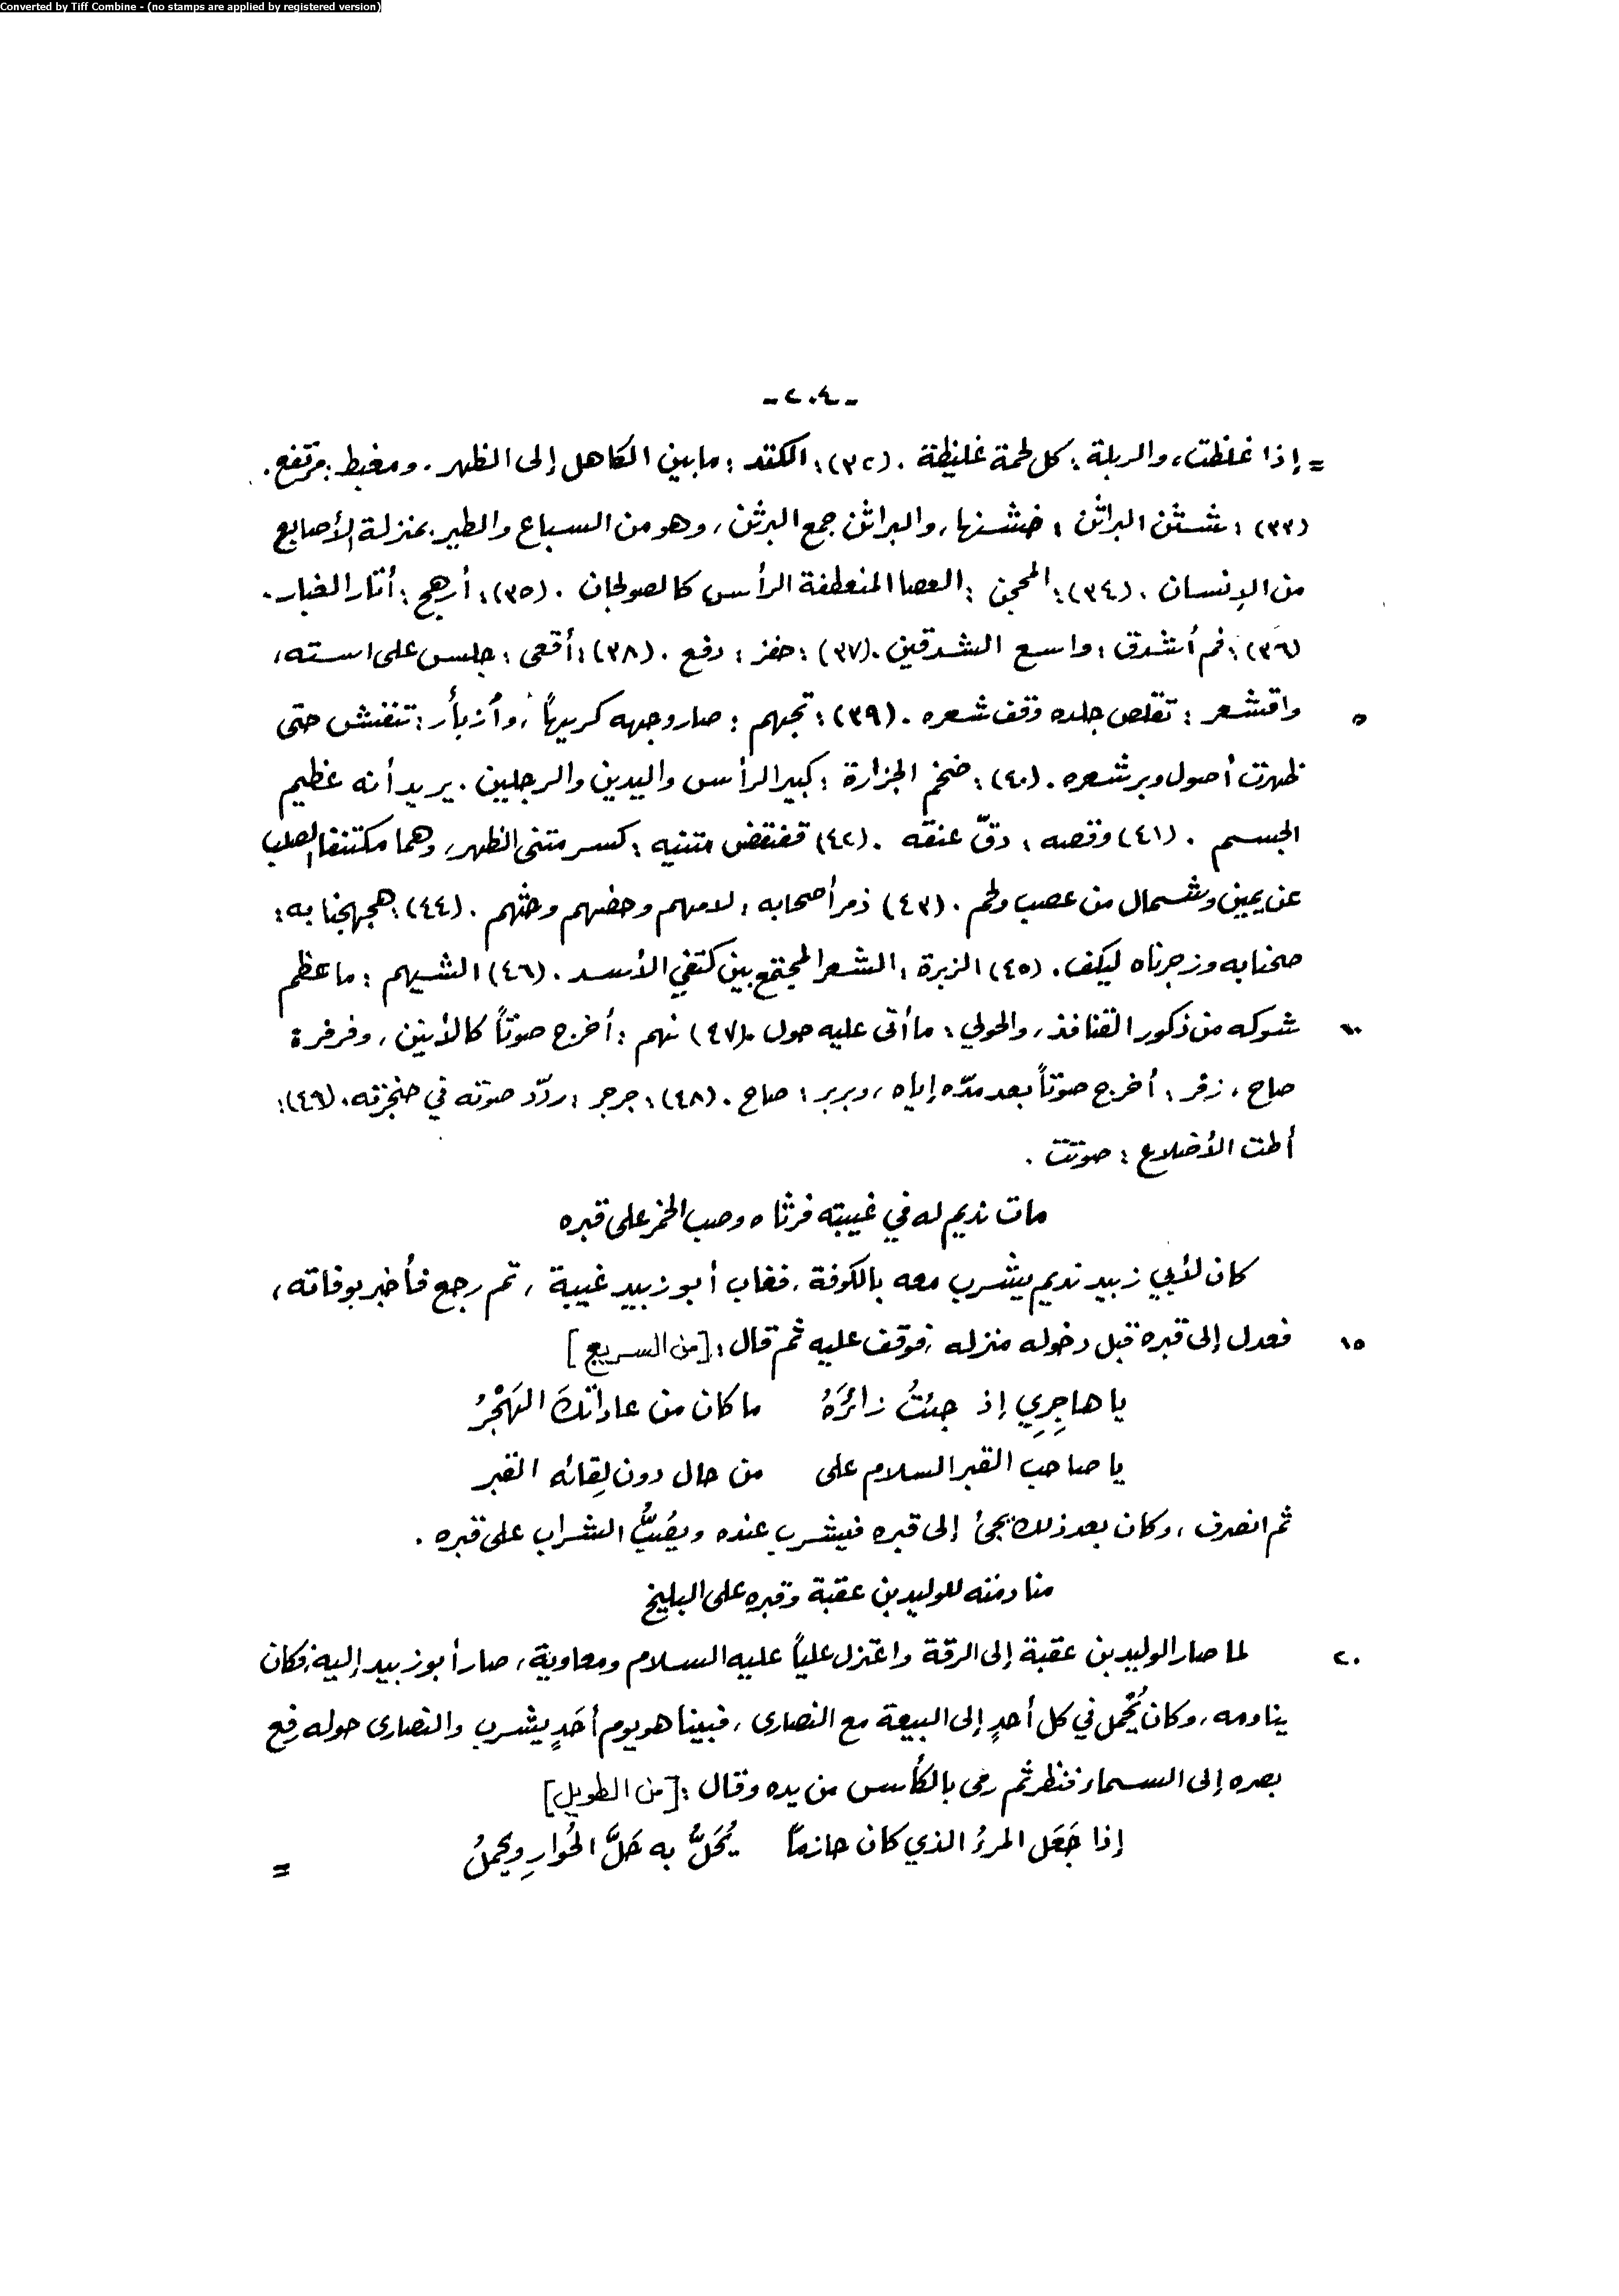 Converted by Tiff Combine - (no stamps are applied by registered version)
-٢٠٤-
= إذا غلظت، والربلة: كل لحمة غليظة. (٣٢): الكتد: ما بين الكاهل إلى الظهر. ومغبط: مرتفع.
(٣٣): شثن البراثن: خشنها، والبراثن جمع البرثن، وهو من السباع والطير بمنزلة الأصابع
من الإنسان. (٣٤): المحجن: العصا المنعطفة الرأس كالصولجان. (٣٥): أرهج: أثار الغبار.
(٣٦): فم أشدق: واسع الشدقين. (٣٧): حفز: دفع. (٣٨): أقعى: جلس على استه،
٥ واقشعر: تقلص جلده وقف شعره. (٣٩): تجهم: صار وجهه كريهاً، وأزبأر: تنفش حتى
ظهرت أصول وبر شعره. (٤٠): ضخم الجزارة: كبير الرأس واليدين والرجلين. يريد أنه عظيم
الجسم. (٤١) وقصه: دقّ عنقه. (٤٢) قضقض متنيه: كسر متني الظهر، وهما مكتنفا الصلب
عن يمين وشمال من عصب ولحم. (٤٣) ذمر أصحابه: لامهم وحضهم وحثهم. (٤٤): هجهجنا به:
صحنا به وزجرناه ليكف. (٤٥) الزبرة: الشعر المجتمع بين كتفي الأسد. (٤٦) الشيهم: ما عظم
١٠ شوكه من ذكور القنافذ، والحولي: ما أتى عليه حول. (٤٧) نهم: أخرج صوتاً كالأنين، وفرفرة
صاح، زفر: أخرج صوتاً بعد مدّه إياه، وبربر: صاح. (٤٨): جرجر: ردّد صوته في حنجرته. (٤٩):
أطت الأضلاع: صوتت.
مات نديم له في غيبته فرثاه وصب الخمر على قبره
كان لأبي زبيد نديم يشرب معه بالكوفة، فغاب أبو زبيد غيبة، ثم رجع فأخبر بوفاته،
١٥ فعدل إلى قبره قبل دخوله منزله، فوقف عليه ثم قال: [من السريع]
يا هاجِرِي إذ جئتُ زائرَهُ ما كان من عاداتكَ الهَجْرُ
يا صاحب القبر السلام على من حال دون لِقائه القبر
ثم انصرف، وكان بعد ذلك يجئ إلى قبره فيشرب عنده ويصُبُّ الشراب على قبره.
منادمته للوليد بن عقبة وقبره على البليخ
٢٠ لما صار الوليد بن عقبة إلى الرقة واعتزل علياً عليه السلام ومعاوية، صار أبو زبيد إليه، فكان
ينادمه، وكان يُحمل في كل أحدٍ إلى البيعة مع النصارى، فبينا هو يوم أحَدٍ يشرب والنصارى حوله رفع
بصره إلى السماء فنظر ثم رمى بالكأس من يده وقال: [من الطويل]
إذا جَعَل المرءُ الذي كان حازماً يُحَلُّ به حَلَّ الحُوارِ ويحملُ
=